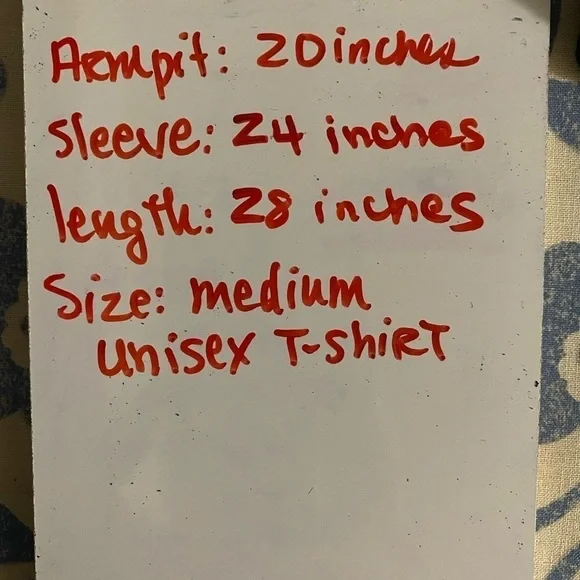 Armpit: 20 inches
Sleeve: 24 inches
length: 28 inches
Size: medium
unisex T-shirt